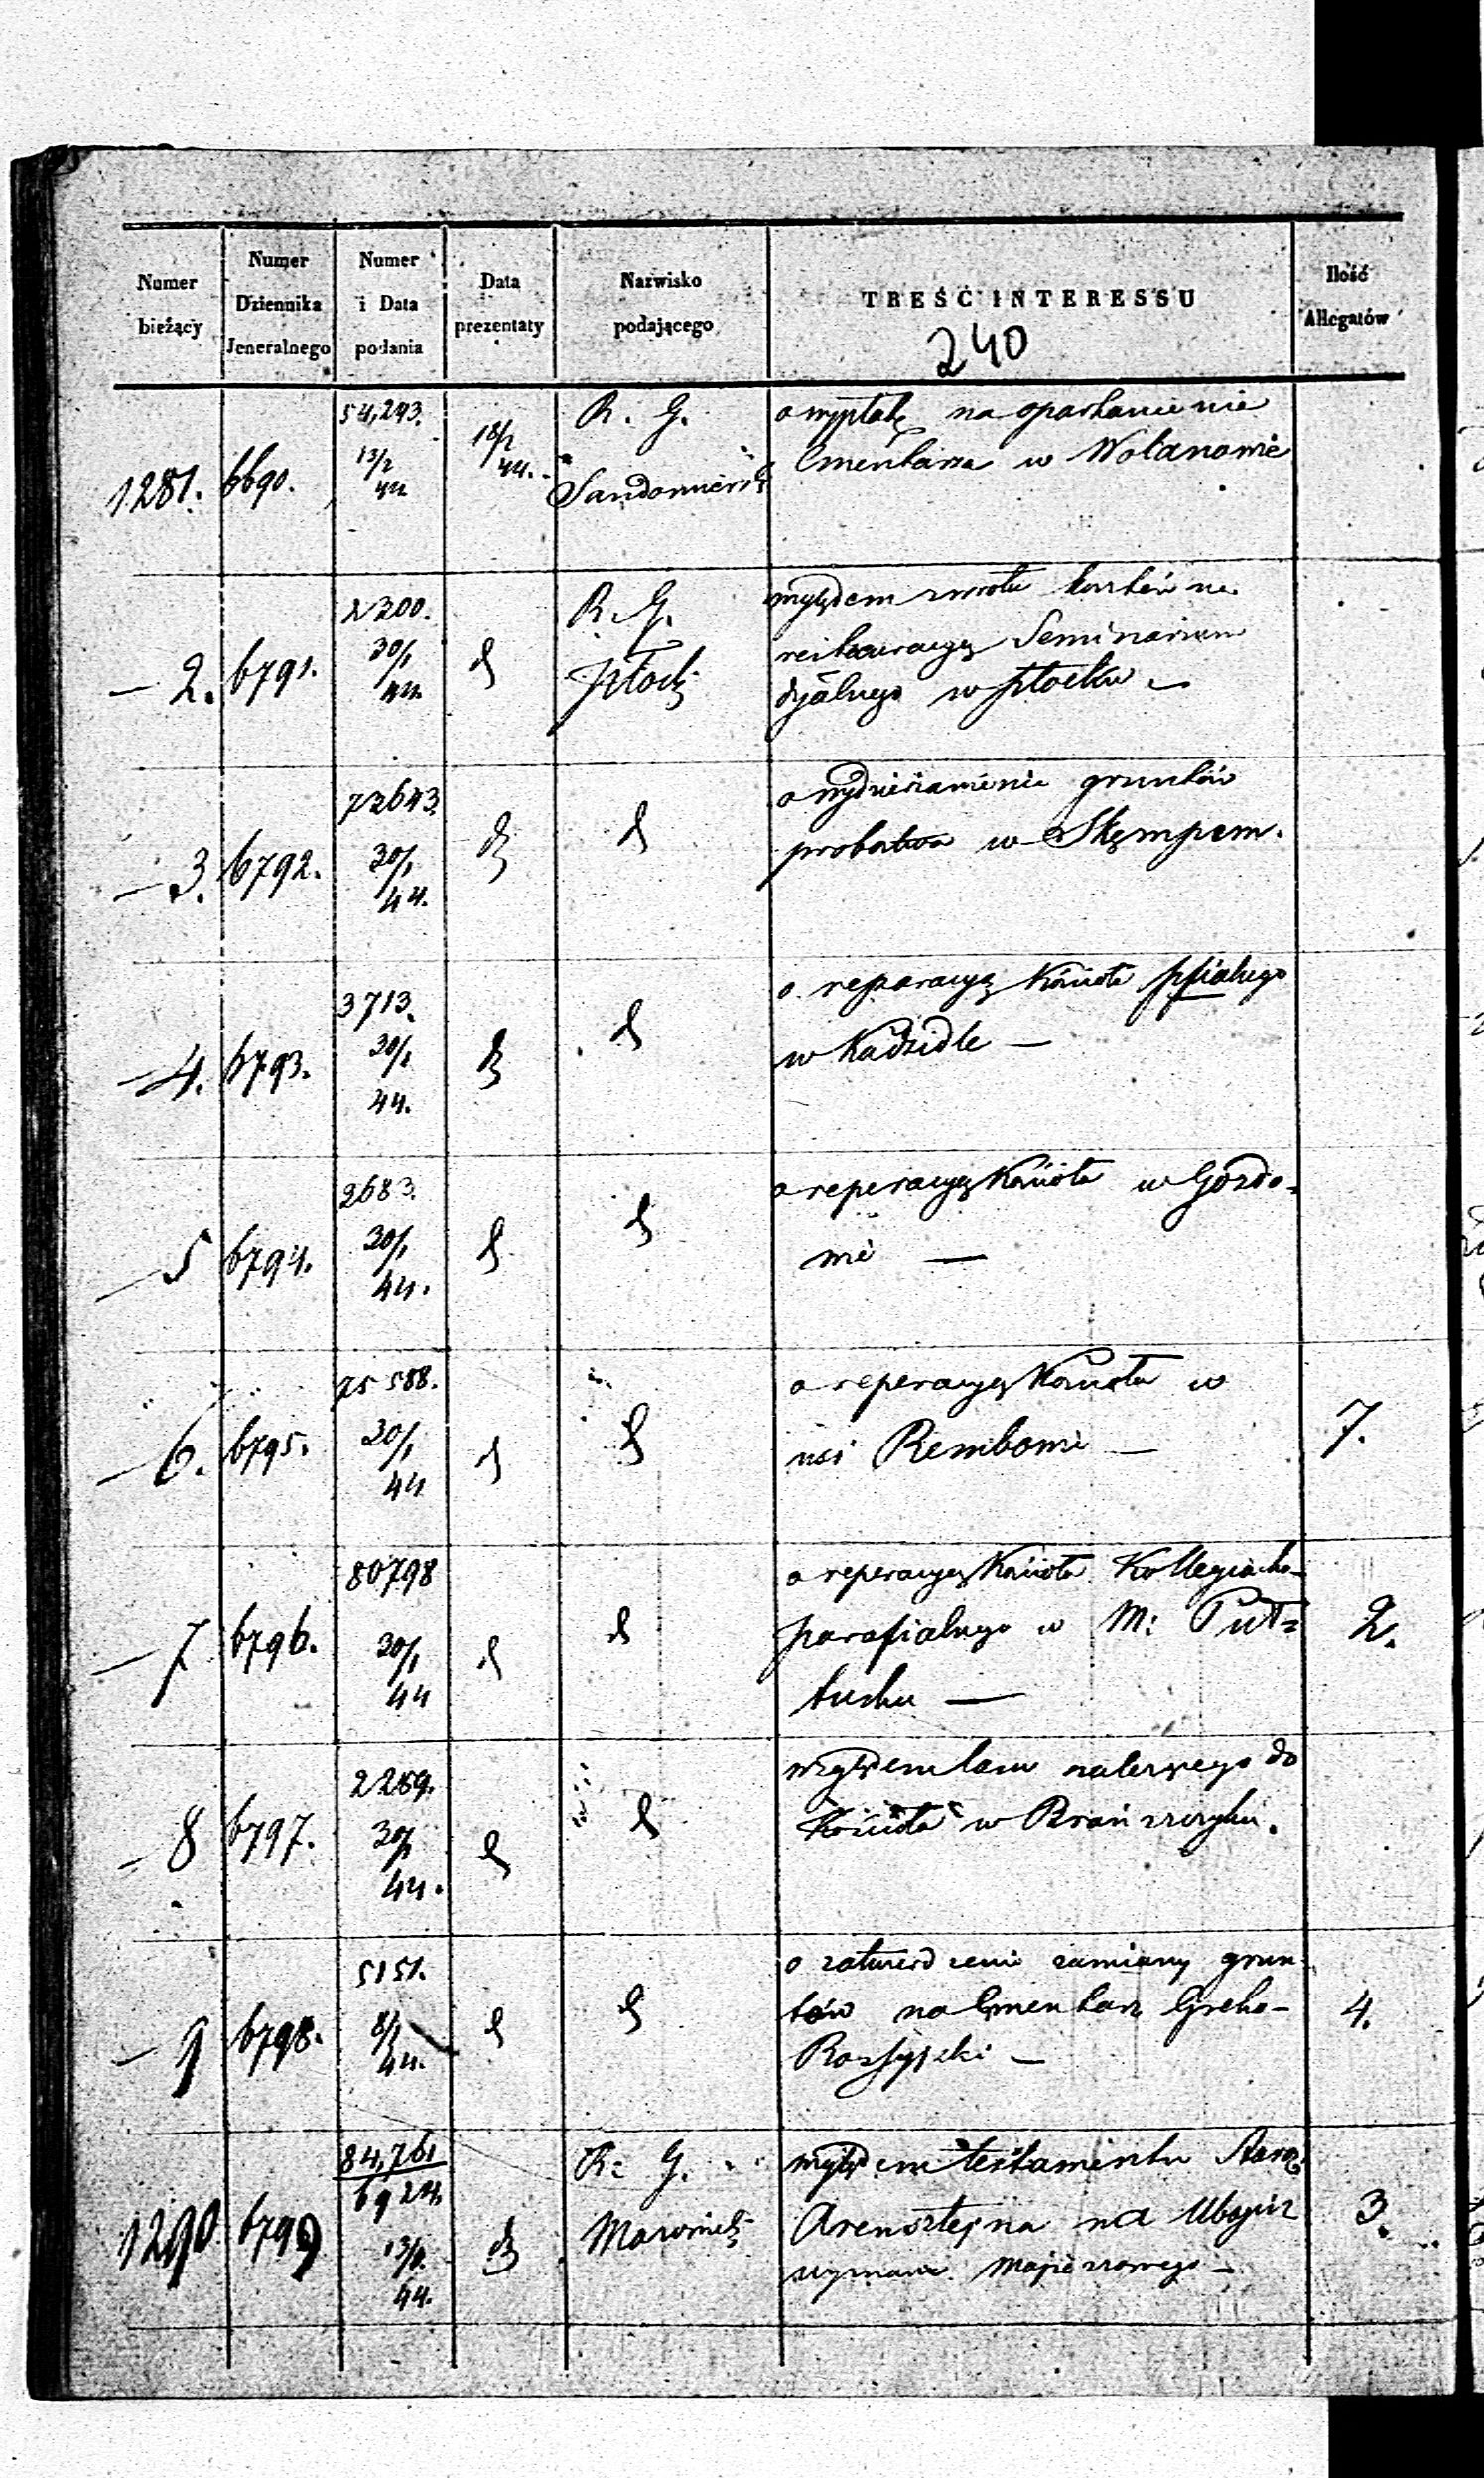 Numer bieżący
Numer Dziennika Jeneralnego
Numer i Data podania
Data prezentaty
Nazwisko podającego
TREŚĆ INTERESSU
Ilość Allegatów
240
1281. 6690. 54,293. 13/2 44 18/2 44. R. G. Sandomierski
o wypłatę na oparkanienie
Cmentarza w Wolanowie
2. 6791. 2300. 30/1 44. R. G. Płocki
względem zwrotu kosztów na
restauracyą Seminarium
dyalnego w Płocku
3. 6792. 72643. 30/1 44.
o wydzierżawienie gruntów
probostwa w Skępem.
4. 6793. 3713. 30/1 44.
o reparacyą Kościoła pfialnego
w Kadzidle
5 6794. 2683. 30/1 44.
o reperacyą Kościoła w Gozdo=
wie
6. 6795. 75588. 30/1 44
o reperacyą Kościoła w
wsi Rembowie
7.
7 6796. 80798 30/1 44
o reperacyą Kościoła Kollegiacko-
parafialnego w M: Puł=
tusku
2.
8 6797. 2289. 30/1 44.
względem lasu należącego do
Kościoła w Brańszczyku.
9 6798. 5151. 8/1 44.
o zatwierdzenie zamiany grun
tów na Cmentarz Greko-
Rossyjski
4.
1290 6799 84,761 6924. 13/2 44. R: G. Mazowiecki
względem testamentu
Arensztejna na
3.